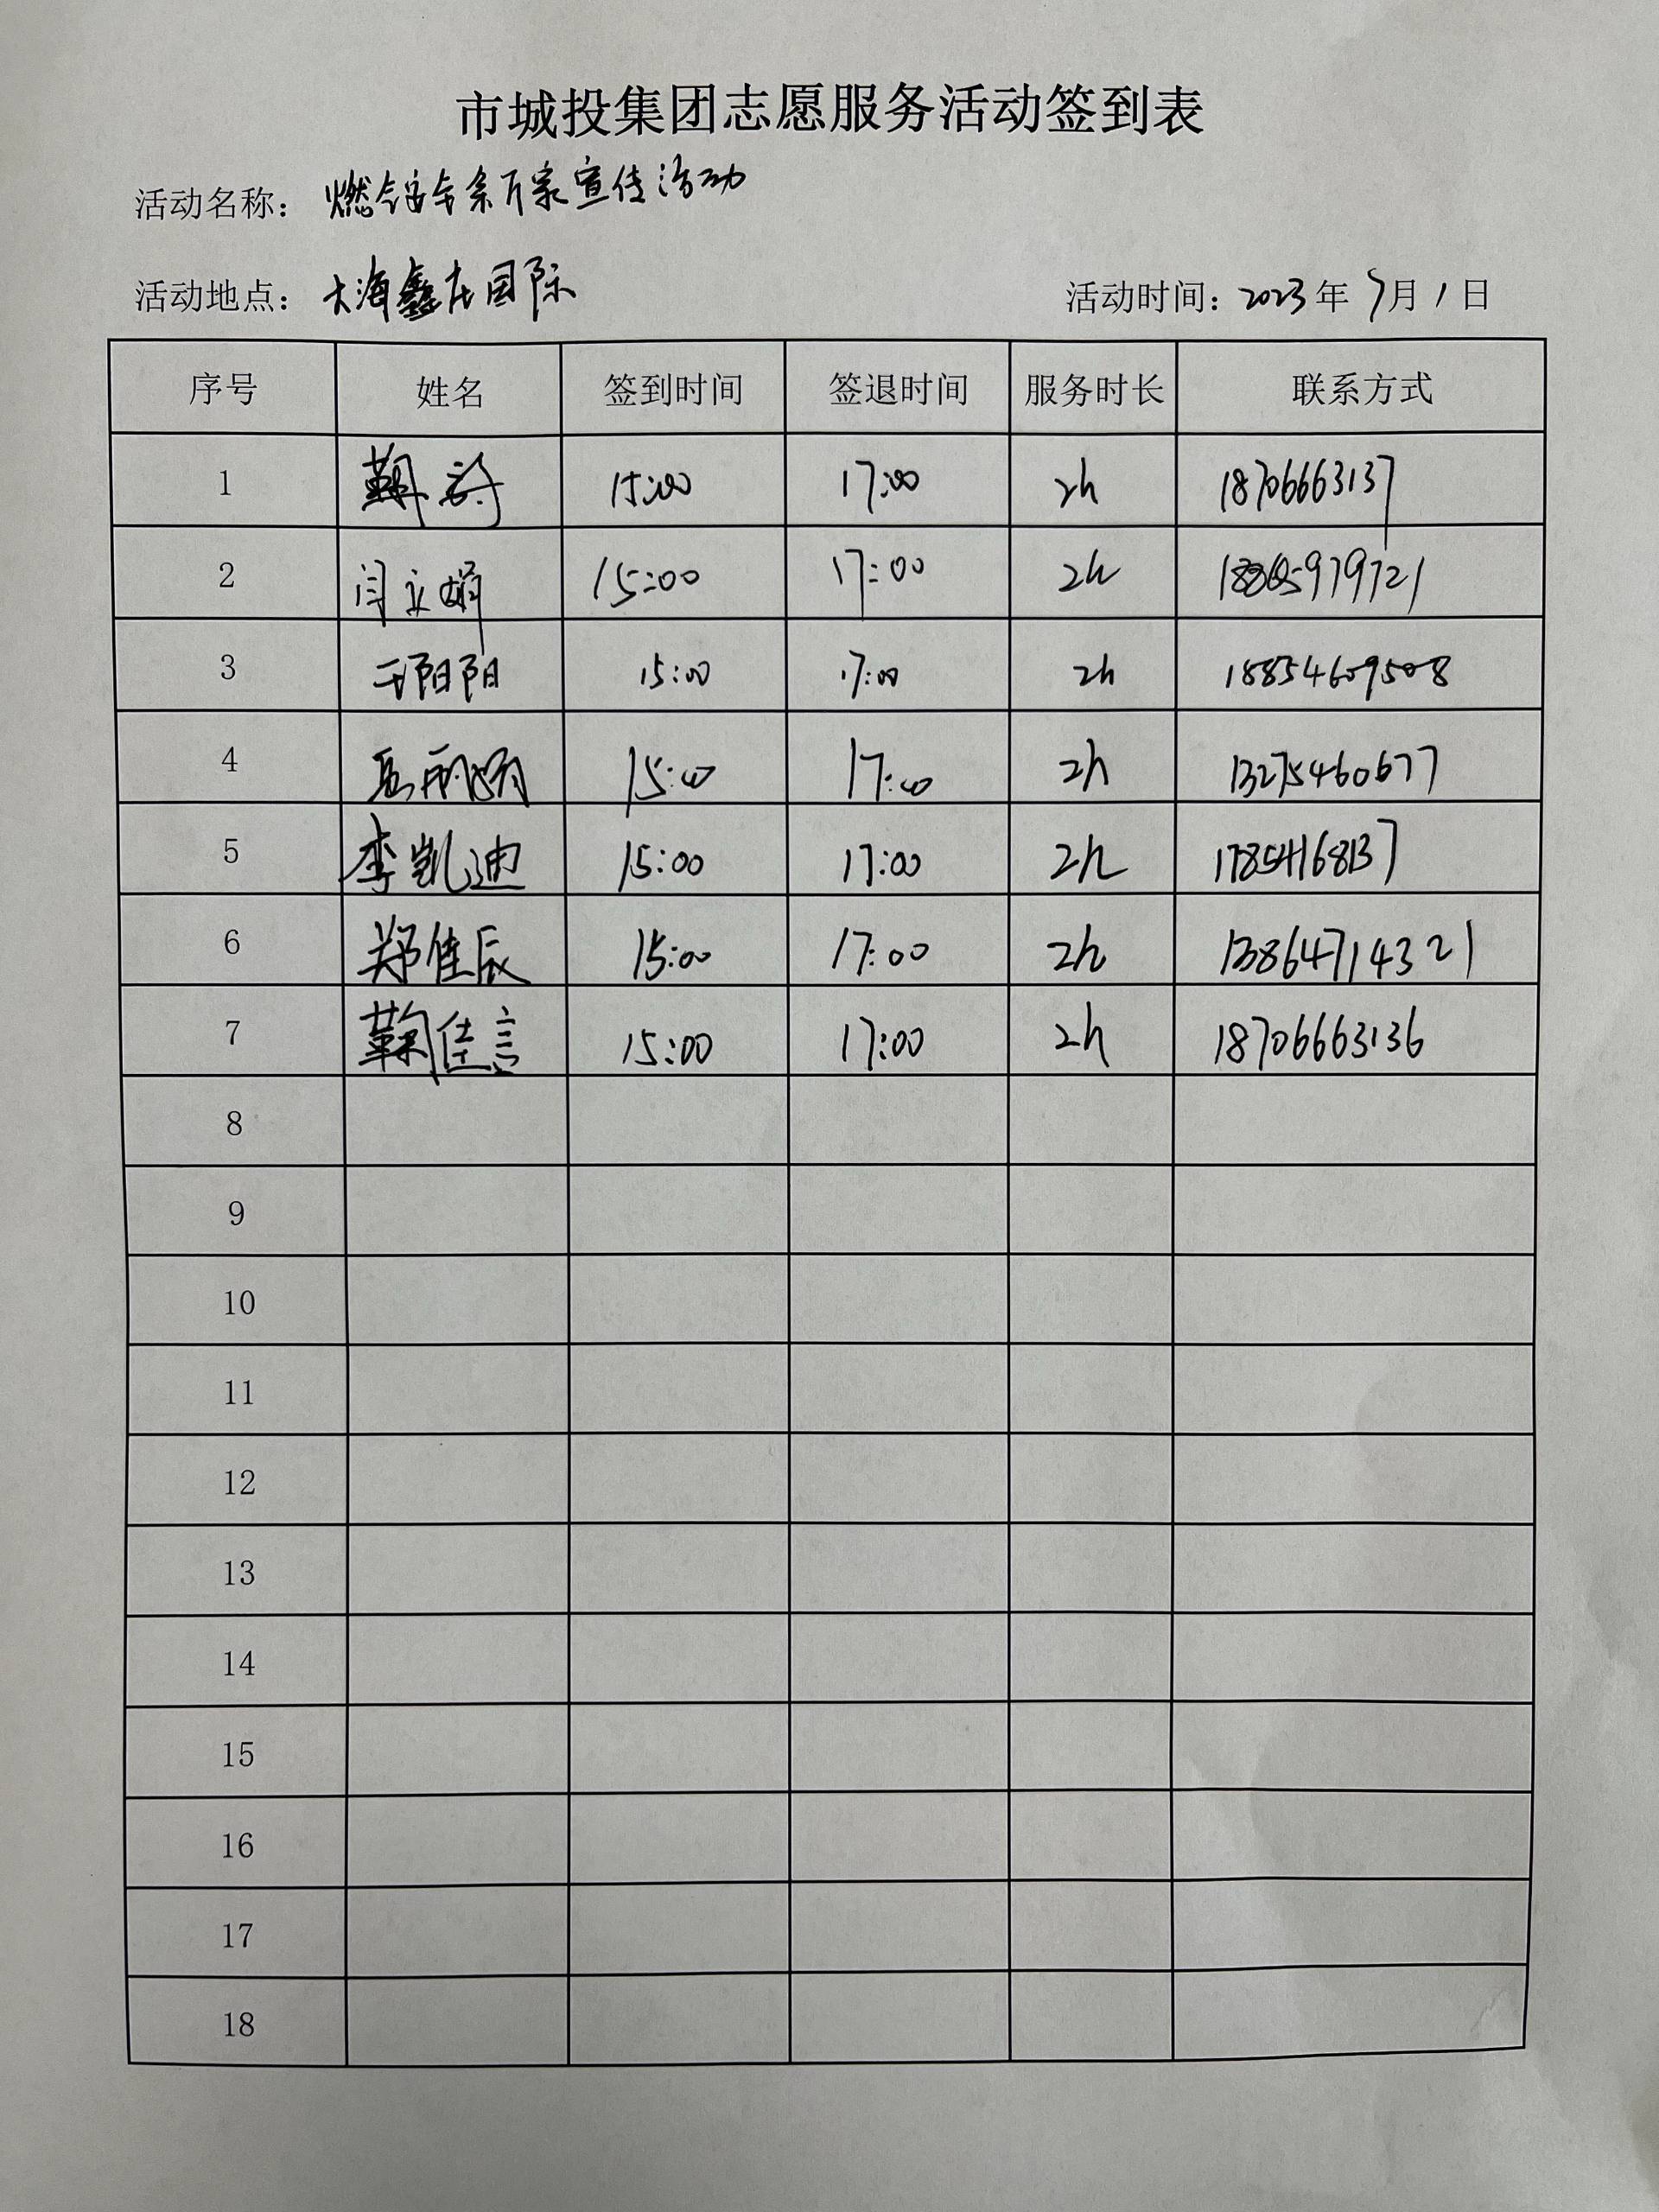 市城投集团志愿服务活动签到表
活动名称：燃气安全系万家宣传活动
活动地点：大海鑫庄国际 活动时间：2023年9月1日
序号 姓名 签到时间 签退时间 服务时长 联系方式
1 15:00 17:00 2h 18706663137
2 闫立娟 15:00 17:00 2h
3 王阳阳 15:00 17:00 2h 18854609508
4 15:00 17:00 2h 13275460677
5 李凯迪 15:00 17:00 2h 17854168137
6 郑佳辰 15:00 17:00 2h 13864714321
7 鞠佳言 15:00 17:00 2h 18706663136
8
9
10
11
12
13
14
15
16
17
18